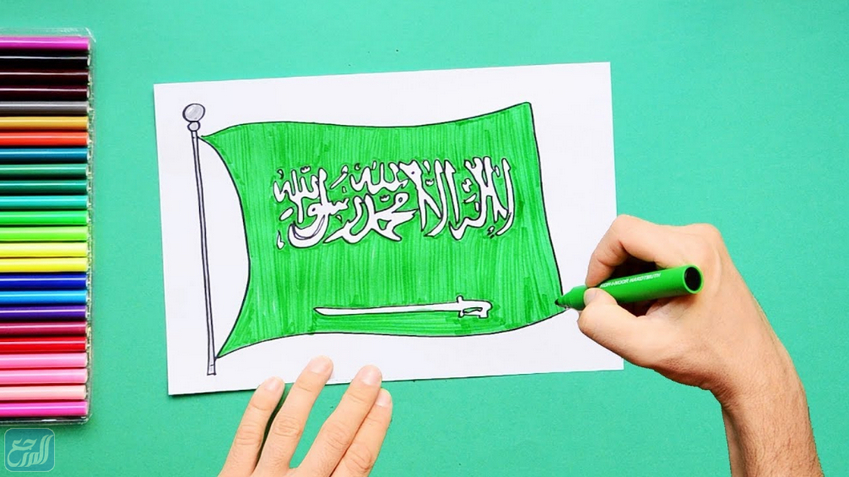 لا إله إلا الله محمد رسول الله
المرجع